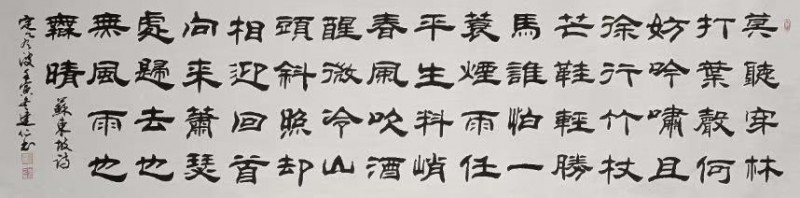 莫聽穿林
打葉聲何
妨吟嘯且
徐行竹杖
芒鞋輕勝
馬誰怕一
蓑煙雨任
平生料峭
春風吹酒
醒微冷山
頭斜照却
相迎回首
向來蕭瑟
處歸去也
無風雨也
無晴
蘇東坡詩
定風波壬寅建仁书